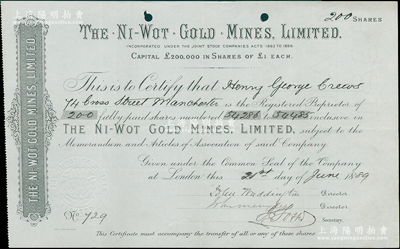 200 SHARES
THE NI-WOT GOLD MINES, LIMITED.
INCORPORATED UNDER THE JOINT STOCK COMPANIES ACTS 1862 TO 1886.
CAPITAL £200,000 IN SHARES OF £1 EACH.
This is to Certify that Henry George Crews
74 Cross Street Manchester is the Registered Proprietor of
200 fully paid share numbered 54286 / 54485 inclusive in
THE NI-WOT GOLD MINES, LIMITED, subject to the
Memorandum and Articles of Association of said Company
Given under the Common Seal of the Company
at London this 21st day of June 1889
Director
Director
Secretary
No. 729
This Certificate must accompany the transfer of all or any of these shares
THE NI-WOT GOLD MINES, LIMITED.